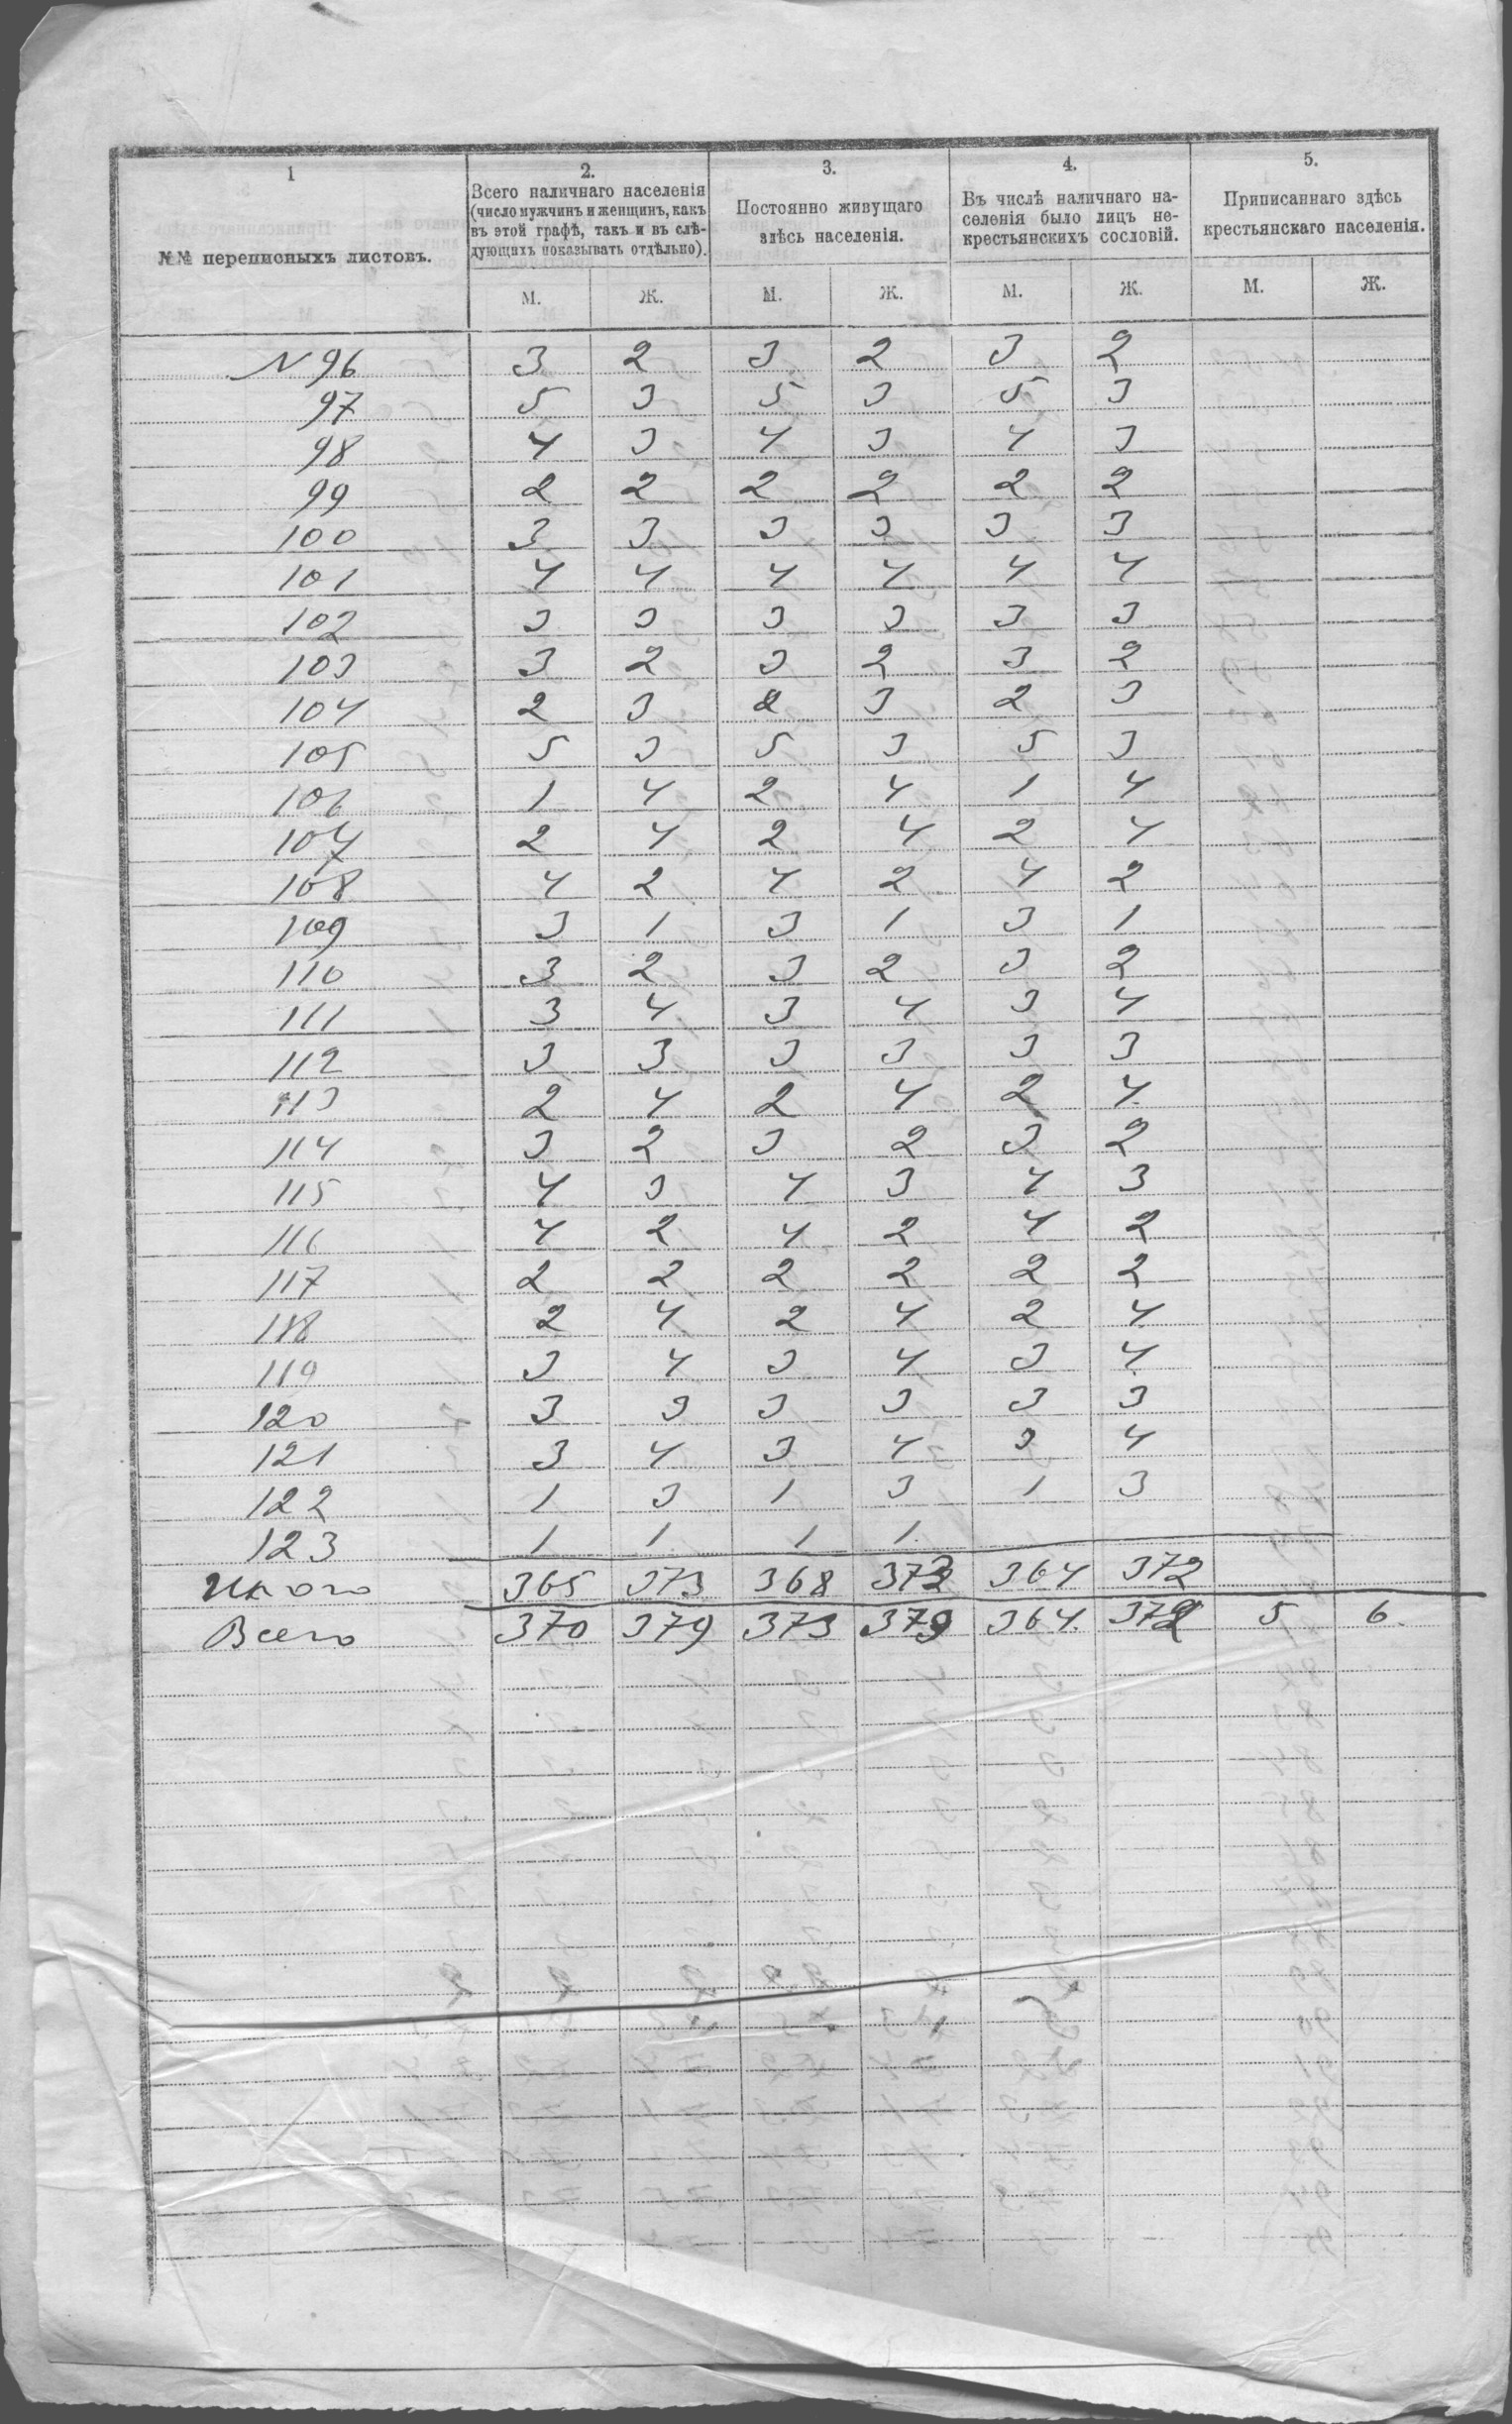 1
№№ переписныхъ листовъ.
2.
Всего наличнаго населенія
(число мужчинъ и женщинъ, какъ
въ этой графѣ, такъ и въ слѣ-
дующихъ показывать отдѣльно).
3.
Постоянно живущаго
здѣсь населенія.
4.
Въ числѣ наличнаго на-
селенія было лицъ не-
крестьянскихъ сословій.
5.
Приписаннаго здѣсь
крестьянскаго населенія.
М. Ж. М. Ж. М. Ж. М. Ж.
N 96 3 2 3 2 3 2
97 5 3 5 3 5 3
98 4 3 4 3 4 3
99 2 2 2 2 2 2
100 3 3 3 3 3 3
101 4 4 4 4 4 4
102 3 3 3 3 3 3
103 3 2 3 2 3 2
104 2 3 2 3 2 3
105 5 3 5 3 5 3
106 1 4 2 4 1 4
107 2 4 2 4 2 4
108 4 2 4 2 4 2
109 3 1 3 1 3 1
110 3 2 3 2 3 2
111 3 4 3 4 3 4
112 3 3 3 3 3 3
113 2 4 2 4 2 4
114 3 2 3 2 3 2
115 4 3 4 3 4 3
116 4 2 4 2 4 2
117 2 2 2 2 2 2
118 2 4 2 4 2 4
119 3 4 3 4 3 4
120 3 3 3 3 3 3
121 3 4 3 4 3 4
122 1 3 1 3 1 3
123 1 1 1 1
Итого 365 373 368 373 364 372
Всего 370 379 373 379 364. 372 5 6.